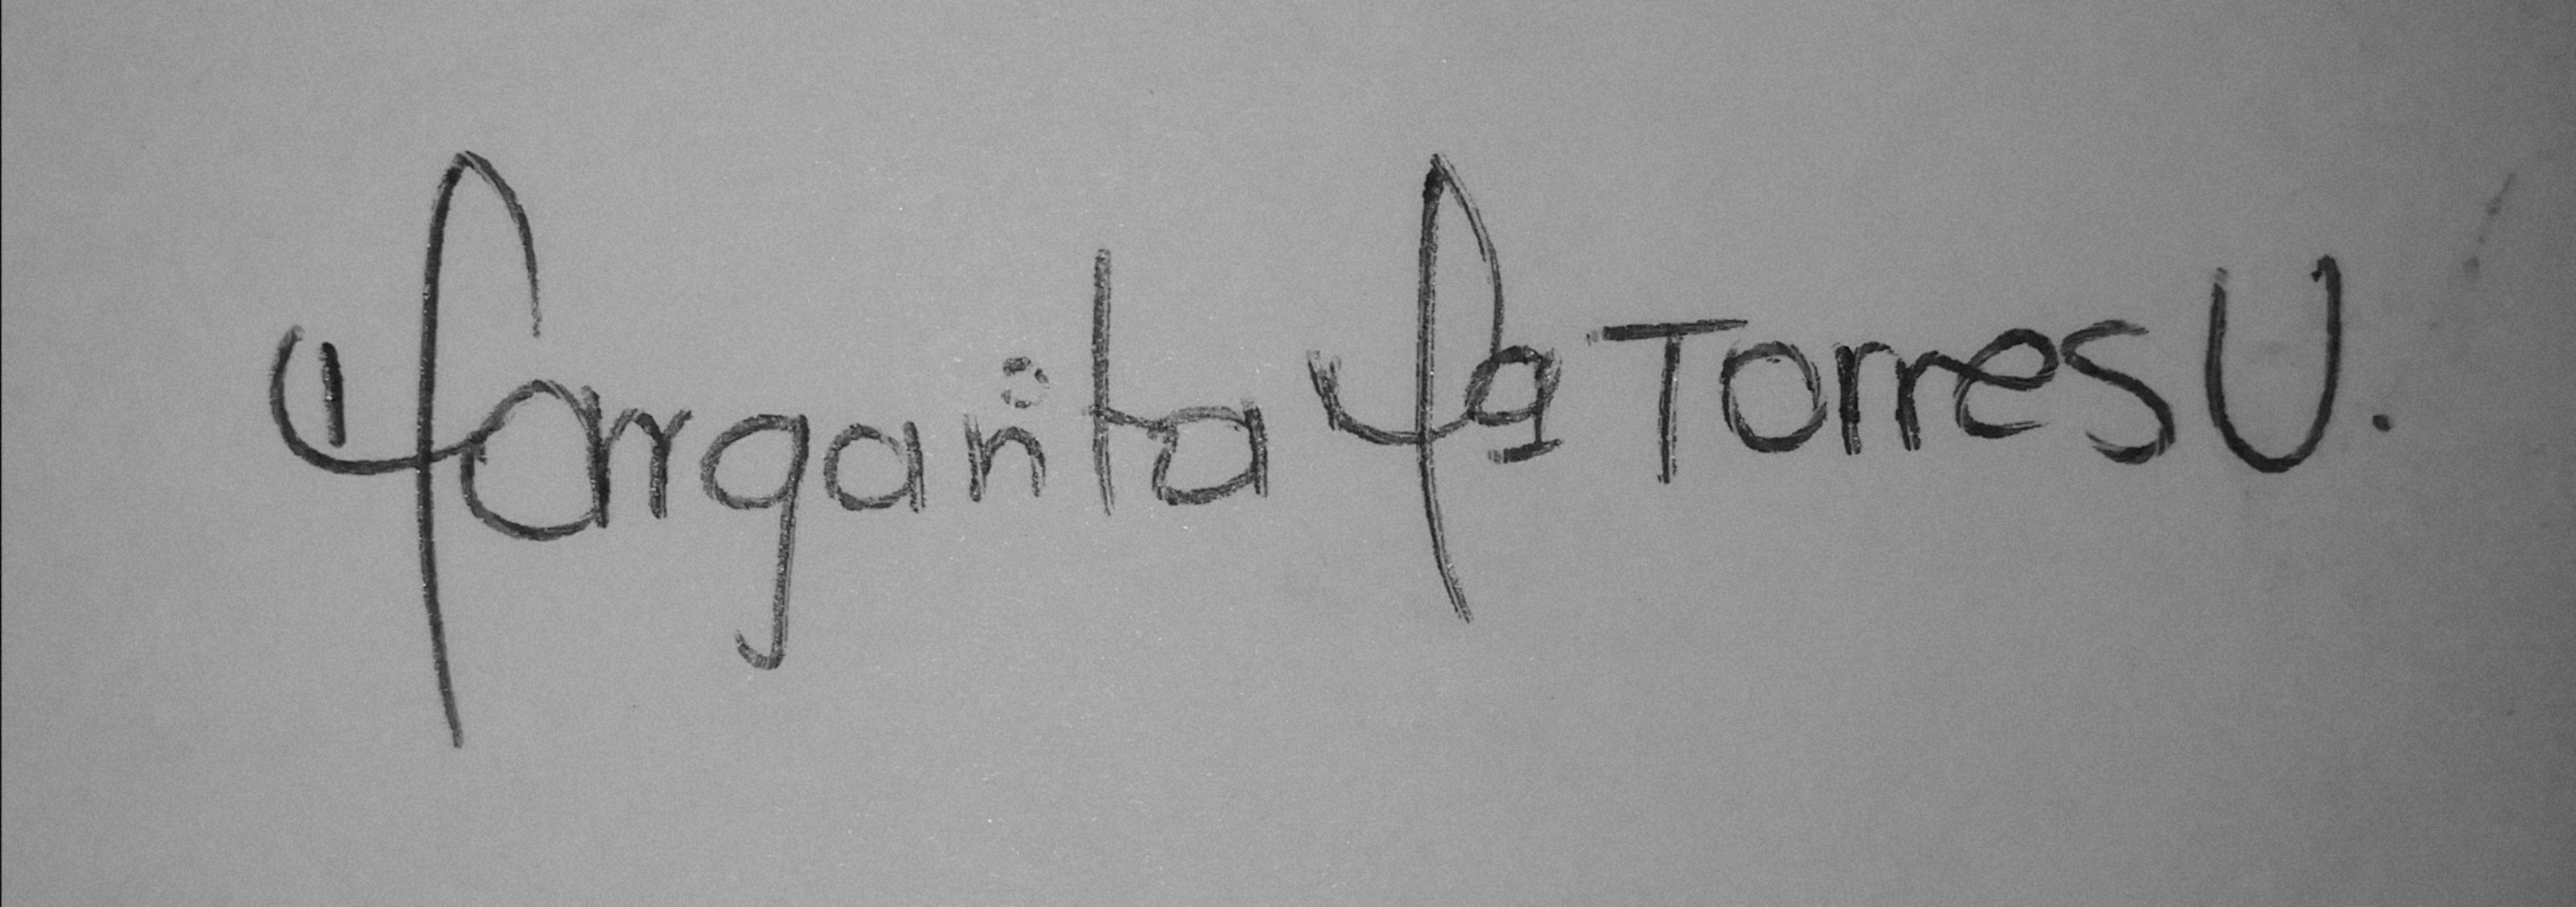 Margarita Ma Torres U.